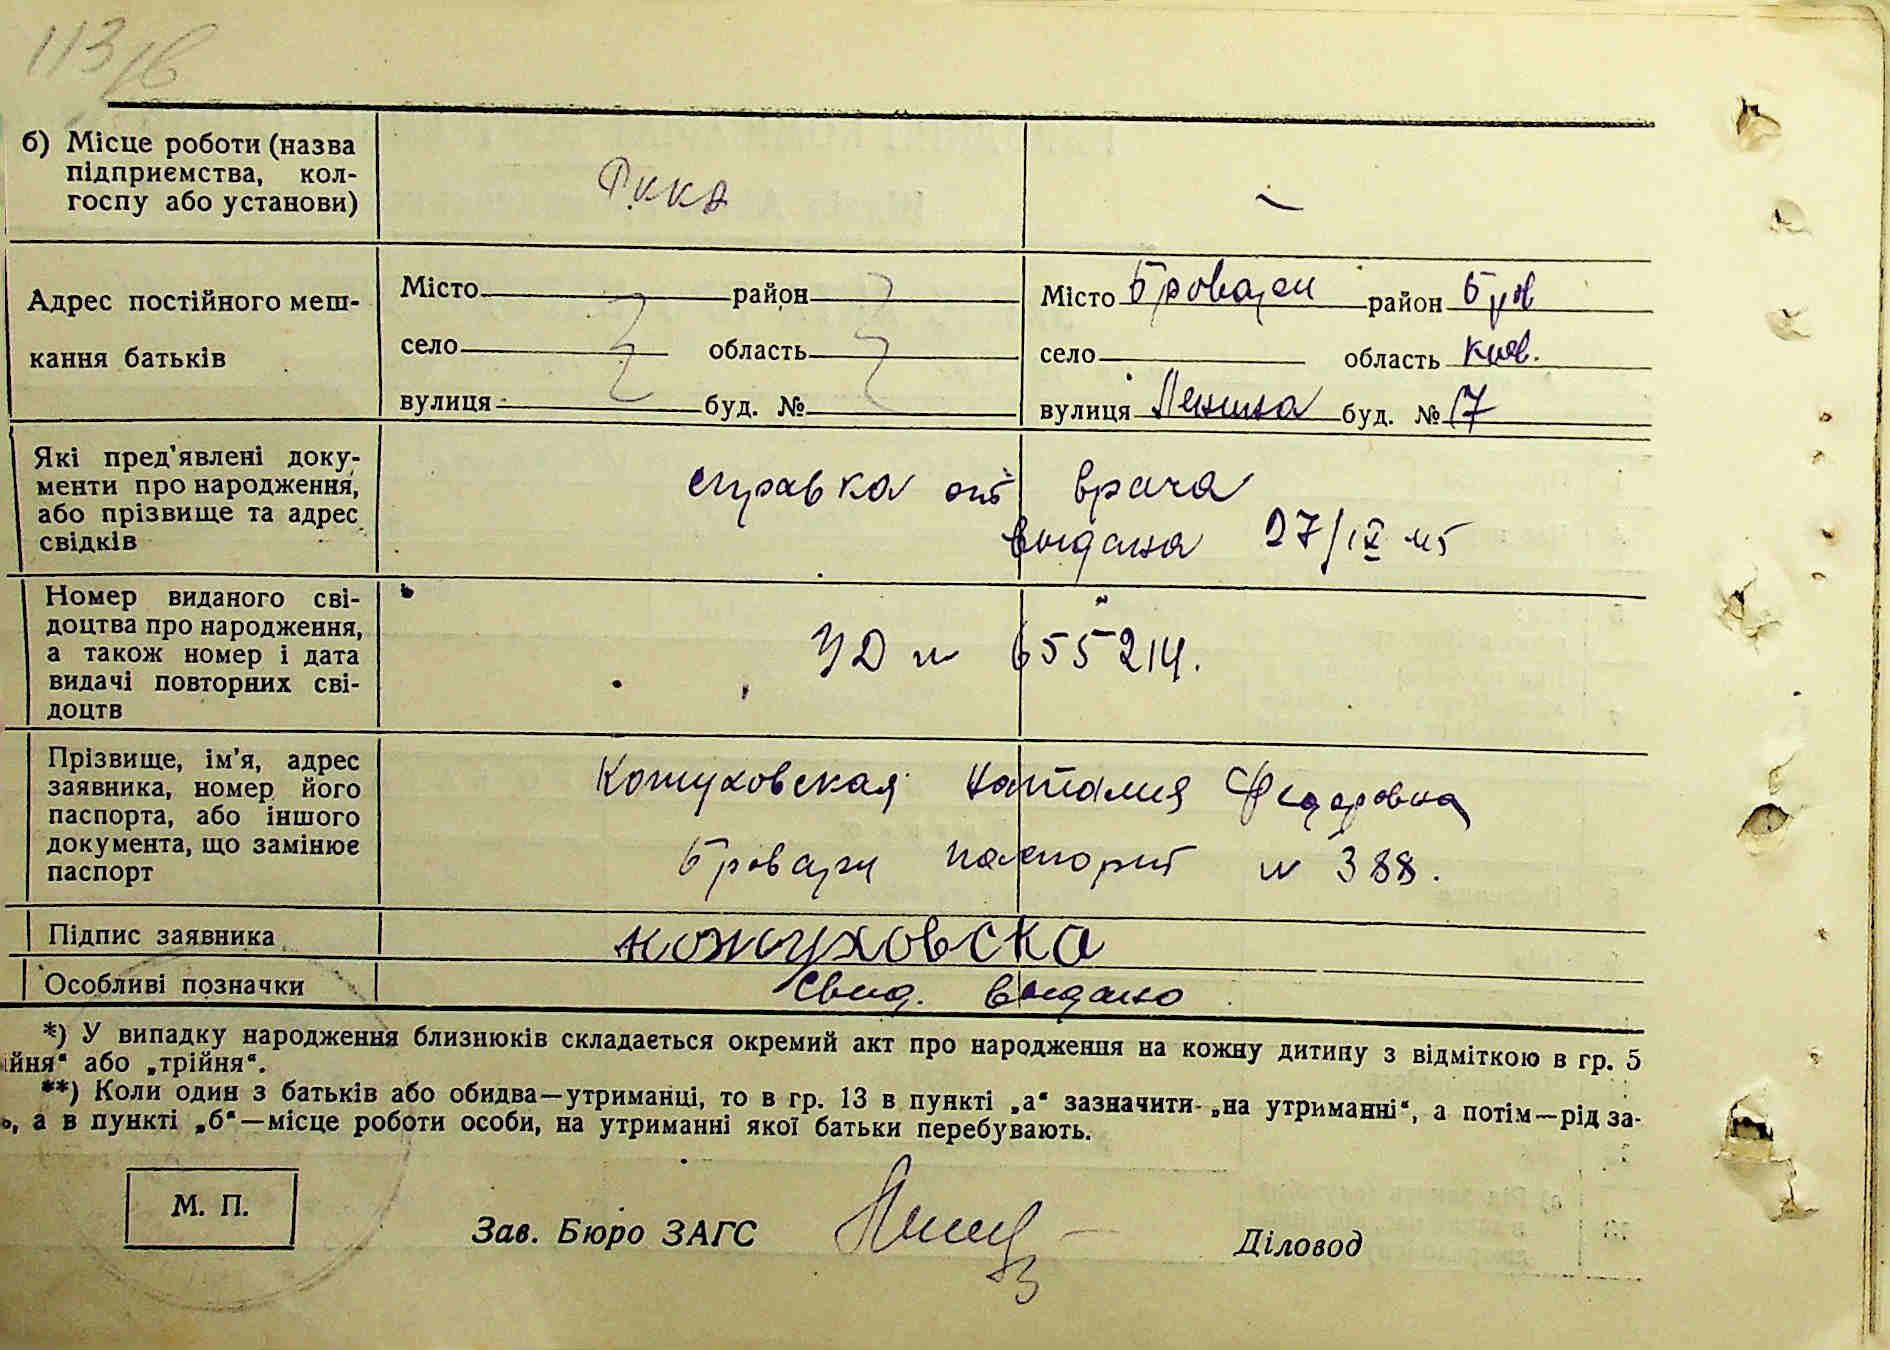 113/в
б) Місце роботи (назва
підприємства, кол-
госпу або установи)
РККА
–
Адрес постійного меш-
кання батьків
Місто район
село область
вулиця буд. №
Місто Бровари район Бров
село область Киев.
вулиця Ленина буд. № 17
Які пред'явлені доку-
менти про народження,
або прізвище та адрес
свідків
справка от врача
выдана 27/IX 45
Номер виданого сві-
доцтва про народження,
а також номер і дата
видачі повторних сві-
доцтв
УД № 655214.
Прізвище, ім'я, адрес
заявника, номер його
паспорта, або іншого
документа, що замінює
паспорт
Кожуховская Наталия Федоровна
Бровари паспорт № 388.
Підпис заявника
кожуховска
Особливі позначки
Свид. выдано
*) У випадку народження близнюків складається окремий акт про народження на кожну дитину з відміткою в гр. 5
ійня“ або „трійня“.
**) Коли один з батьків або обидва—утриманці, то в гр. 13 в пункті „а“ зазначити- „на утриманні“, а потім—рід за-
ь, а в пункті „б“—місце роботи особи, на утриманні якої батьки перебувають.
М. П.
Зав. Бюро ЗАГС
Діловод